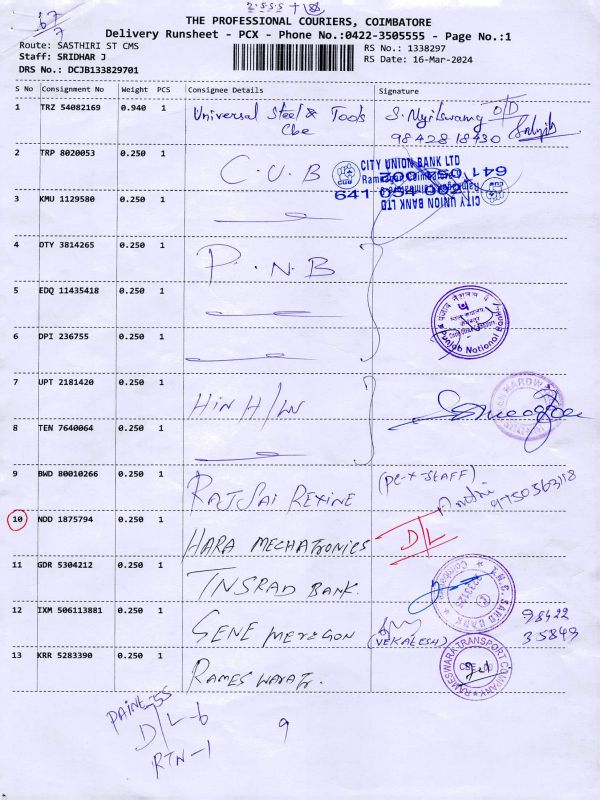 67/7
2.5.5.5 + 18
THE PROFESSIONAL COURIERS, COIMBATORE
Delivery Runsheet - PCX - Phone No.:0422-3505555 - Page No.:1
Route: SASTHIRI ST CMS
RS No.: 1338297
Staff: SRIDHAR J
RS Date: 16-Mar-2024
DRS No.: DCJB133829701
S No Consignment No Weight PCS Consignee Details Signature
1 TRZ 54082169 0.940 1 Universal Steel & Tools
Cbe
98428 18430
2 TRP 8020053 0.250 1 C.U.B
CITY UNION BANK LTD
641 054 002
3 KMU 1129580 0.250 1
4 DTY 3814265 0.250 1 P.N.B
5 EDQ 11435418 0.250 1
Punjab National Bank
6 DPI 236755 0.250 1
7 UPT 2181420 0.250 1 Hin H/W
8 TEN 7640064 0.250 1
9 BWD 80010266 0.250 1 RAJSAI REXINE (PC-X-STAFF)
9750563118
10 NDD 1875794 0.250 1 HARA MECHATRONICS D/L
11 GDR 5304212 0.250 1 TNSRAD BANK.
12 IXM 506113881 0.250 1 GENE MEREGON (VEKATESH) 98422
35849
13 KRR 5283390 0.250 1 RAMESWARA Tr.
RAMESWARA TRANSPORT COMPANY
D/L-6
RTN-1
9